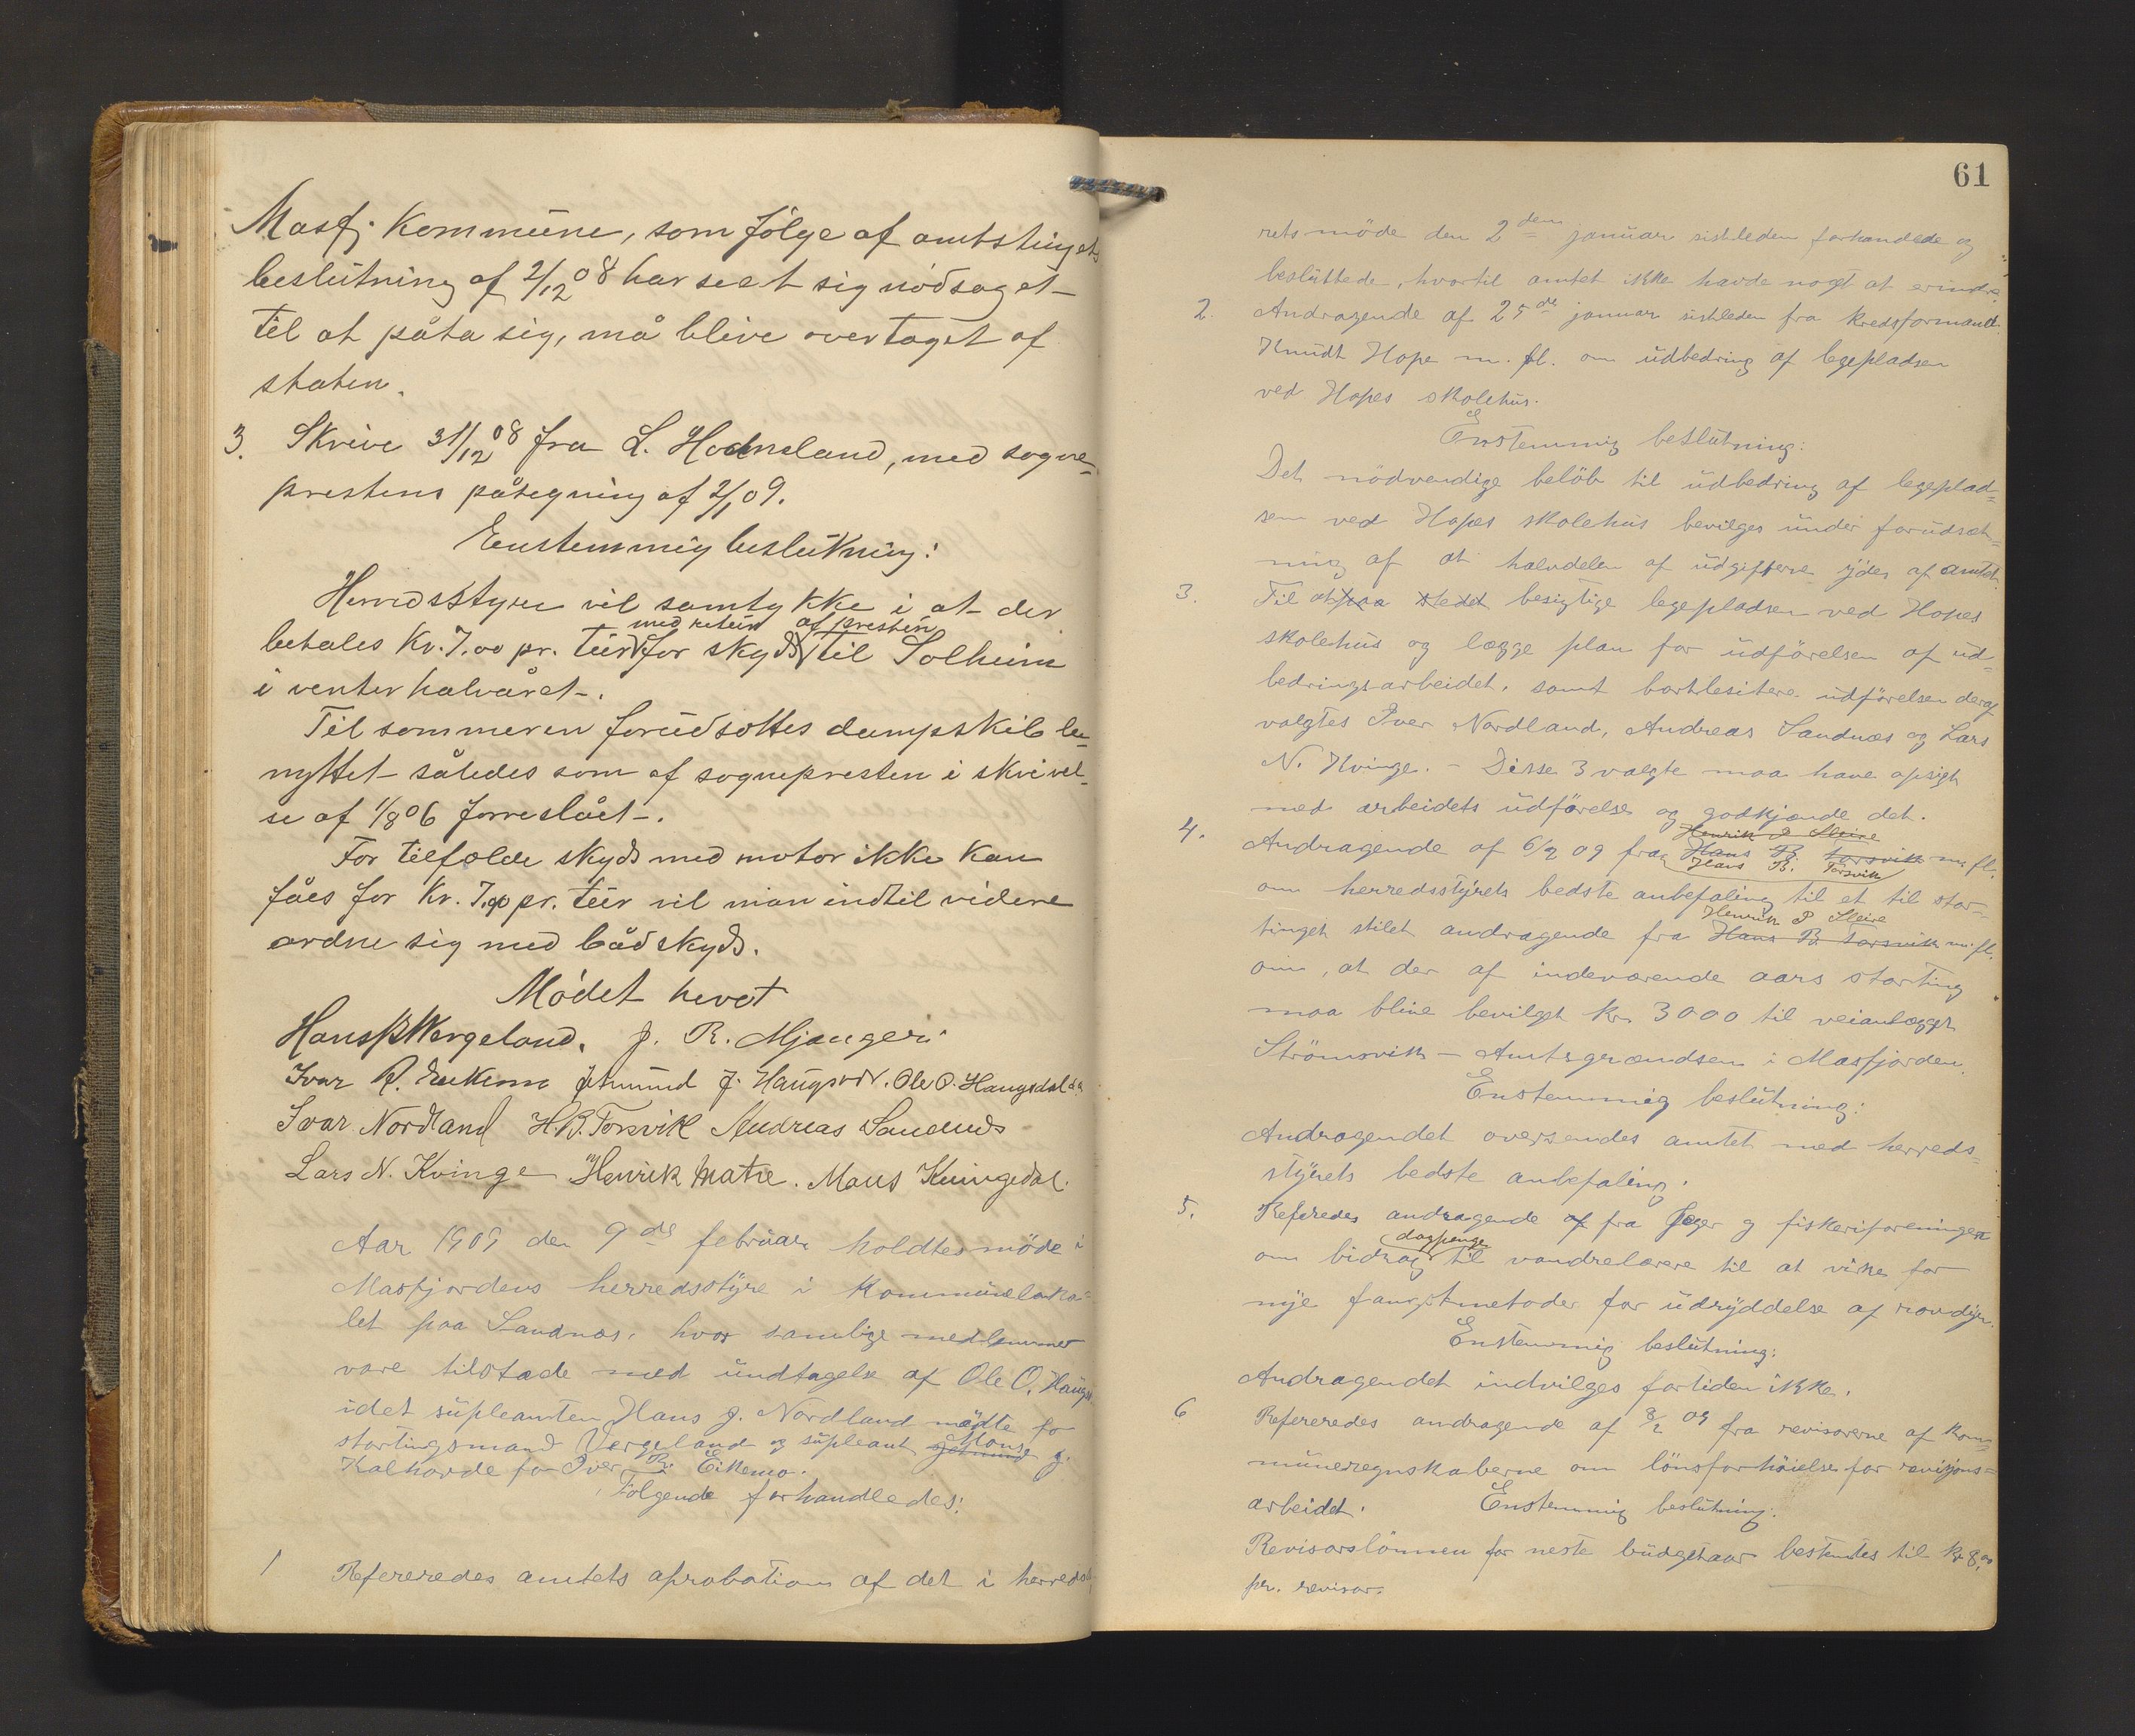 Masfj. Kommune, som følge af amtstingets
beslutning af 2/12 08 har seet sig nødsaget
til at påta sig, må blive overtaget af
staten.
3. Skrive 31/12 08 fra L. Hodneland, med sogne-
prestens påtegning af 2/1 09.
Enstemmig beslutning:
Herredsstyre vil samtykke i at der
med retur af presten
betales Kr. 7.00 pr. tur for skyds til Solheim
i venterhalvåret.
Til sommeren forudsættes dampskib be-
nyttet således som af sognepresten i skrivel-
se af 1/8 06 forreslået.
For tilfælde skyds med motor ikke kan
fåes for Kr. 7.00 pr. tur vil man indtil videre
ordne sig med bådskyds.
Mødet hevet
Hans B Wergeland. J. R. Mjangeri
Ivar R. Eikemo Jetmund J. Haugsvær. Ole O. Haugsdal
Ivar Nordland H.B. Torsvik Andreas Sandnæs
Lars N. Kvinge Henrik Matre. Mons Kvingedal.
Aar 1909 den 9de februar holdtes møde i
Masfjordens herredsstyre i Kommuneloka-
let paa Sandnæs, hvor samlige medlemmer
vare tilstæde med undtagelse af Ole O. Haugsd.
idet supleanten Hans J. Nordland mødte for
Mons
stortingsmand Vergeland og supleant Jetmund J.
Kalhovde for Iver R. Eikemo.
Følgende forhandledes:
1 Refereredes amtets aprobation af det i herredsty
61
rets møde den 2den januar sistleden forhandlede og
besluttede, hvortil amtet ikke havde noget at erindre.
2. Andragende af 25de januar sistleden fra Kredsformand
Knudt Hope m. fl. om udbedring af legepladsen
ved Hopes skolehus.
Enstemmig beslutning:
Det nødvendige beløb til udbedring af legeplad-
sen ved Hopes skolehus bevilges under forudsæt-
ning af at halvdelen af udgifterne ydes af amtet.
3. Til at paa stedet besigtige legepladsen ved Hopes
skolehus og lægge plan for udførelsen af ud-
bedringsarbeidet, samt bortlesitere udførelsen deraf
valgtes Iver Nordland, Andreas Sandnæs og Lars
N. Kvinge. – Disse 3 valgte maa have opsigt
med arbeidets udførelse og godkjende det.
Henrik P Sleire
4. Andragende af 6/2 09 fra Hans B. Torsvik m. fl.
Hans B. Torsvik
om herredsstyrets bedste anbefaling til et til stor-
Henrik P Sleire
tinget stilet andragende fra Hans B. Torsvik m. fl.
om, at der af indeværende aars storting
maa blive bevilget Kr 3000 til veianlægget
Strömsvik – Amtsgrændsen i Masfjorden.
Enstemmig beslutning:
Andragendet oversendes amtet med herreds-
styrets bedste anbefaling.
5. Referedes andragende af fra Jeger og fiskeriforeningen
dagpenge
om bidrag til vandrelærere til at virke for
nye fangstmetoder for udryddelse af rovdyr.
Enstemmig beslutning:
Andragendet indvilges fortiden ikke.
6 Refereredes andragende af 8/2 09 fra revisorerne af Kom-
muneregnskaberne om lønsforhøielse for revisjons-
arbeidet. Enstemmig beslutning:
Revisorslønnen for neste budgetaar bestemtes til Kr 8,00
pr. revisor.